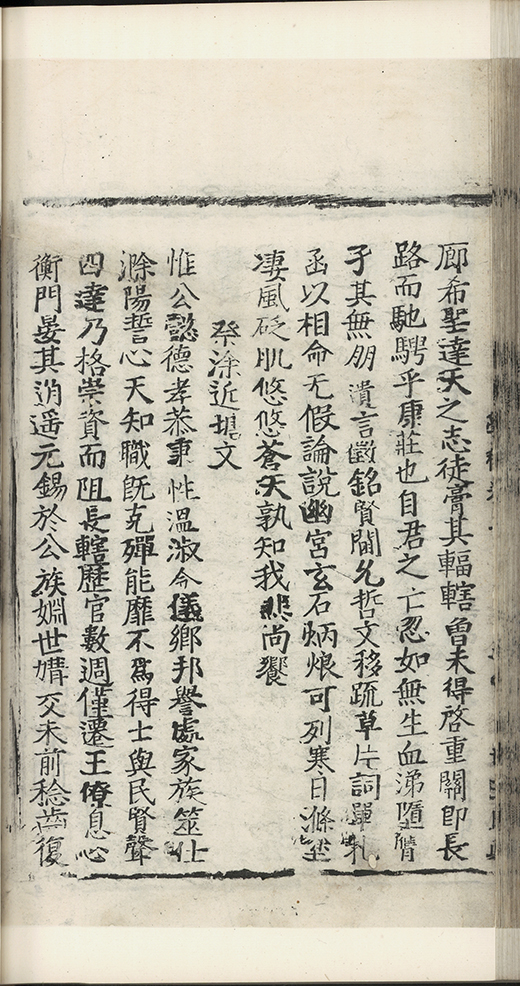 廓希聖達天之志徒膏其輻轄曾未得啓重關即長
路而馳騁乎康莊也自君之亡忍如無生血涕墮膺
孑其無朋遺言徵銘賢閫允哲文移疏草片詞單札
函以相命无假論說幽宮玄石炳烺可列寒日滌
凄風砭肌悠悠蒼天孰知我悲尚饗
祭涂近塘文
惟公懿德孝恭秉性溫淑令儀鄉邦譽處家族筮仕
滁陽誓心天知職旣克殫能靡不爲得士與民賢聲
四達乃格崇資而阻長轄歷官數週僅遷王僚息心
衡門晏其逍遥元錫於公族婣世媾交未前稔齒復